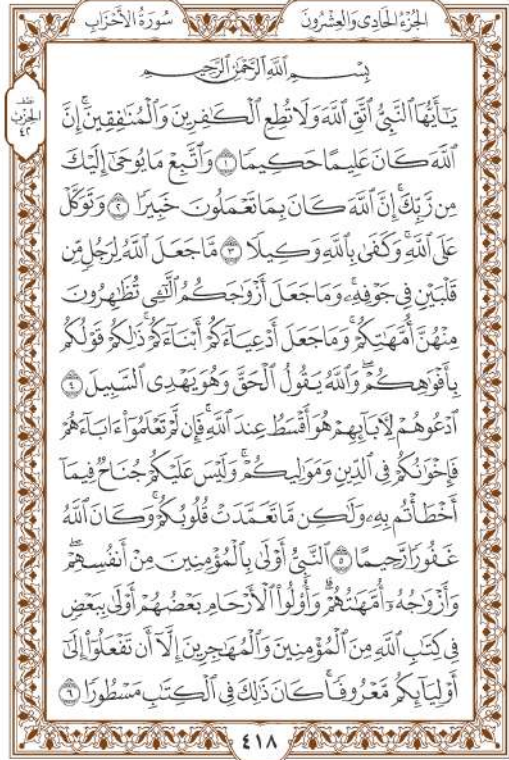 الجُزْءُ الحَادِى وَالعِشْرُونَ
سُورَةُ الأَحْزَابِ
بِسْمِ ٱللَّهِ ٱلرَّحْمَٰنِ ٱلرَّحِيمِ
نصف
الحزب
٤٢
يَٰٓأَيُّهَا ٱلنَّبِيُّ ٱتَّقِ ٱللَّهَ وَلَا تُطِعِ ٱلْكَٰفِرِينَ وَٱلْمُنَٰفِقِينَۚ إِنَّ
ٱللَّهَ كَانَ عَلِيمًا حَكِيمٗا ١ وَٱتَّبِعْ مَا يُوحَىٰٓ إِلَيْكَ
مِن رَّبِّكَۚ إِنَّ ٱللَّهَ كَانَ بِمَا تَعْمَلُونَ خَبِيرٗا ٢ وَتَوَكَّلْ
عَلَى ٱللَّهِۚ وَكَفَىٰ بِٱللَّهِ وَكِيلٗا ٣ مَّا جَعَلَ ٱللَّهُ لِرَجُلٖ مِّن
قَلْبَيْنِ فِي جَوْفِهِۦۚ وَمَا جَعَلَ أَزْوَٰجَكُمُ ٱلَّٰٓـِٔي تُظَٰهِرُونَ
مِنْهُنَّ أُمَّهَٰتِكُمْۚ وَمَا جَعَلَ أَدْعِيَآءَكُمْ أَبْنَآءَكُمْۚ ذَٰلِكُمْ قَوْلُكُم
بِأَفْوَٰهِكُمْۖ وَٱللَّهُ يَقُولُ ٱلْحَقَّ وَهُوَ يَهْدِي ٱلسَّبِيلَ ٤
ٱدْعُوهُمْ لِأٓبَآئِهِمْ هُوَ أَقْسَطُ عِندَ ٱللَّهِۚ فَإِن لَّمْ تَعْلَمُوٓا۟ ءَابَآءَهُمْ
فَإِخْوَٰنُكُمْ فِي ٱلدِّينِ وَمَوَٰلِيكُمْۚ وَلَيْسَ عَلَيْكُمْ جُنَاحٞ فِيمَآ
أَخْطَأْتُم بِهِۦ وَلَٰكِن مَّا تَعَمَّدَتْ قُلُوبُكُمْۚ وَكَانَ ٱللَّهُ
غَفُورٗا رَّحِيمًا ٥ ٱلنَّبِيُّ أَوْلَىٰ بِٱلْمُؤْمِنِينَ مِنْ أَنفُسِهِمْۖ
وَأَزْوَٰجُهُۥٓ أُمَّهَٰتُهُمْۗ وَأُو۟لُوا۟ ٱلْأَرْحَامِ بَعْضُهُمْ أَوْلَىٰ بِبَعْضٖ
فِي كِتَٰبِ ٱللَّهِ مِنَ ٱلْمُؤْمِنِينَ وَٱلْمُهَٰجِرِينَ إِلَّآ أَن تَفْعَلُوٓا۟ إِلَىٰٓ
أَوْلِيَآئِكُم مَّعْرُوفٗاۚ كَانَ ذَٰلِكَ فِي ٱلْكِتَٰبِ مَسْطُورٗا ٦
٤١٨